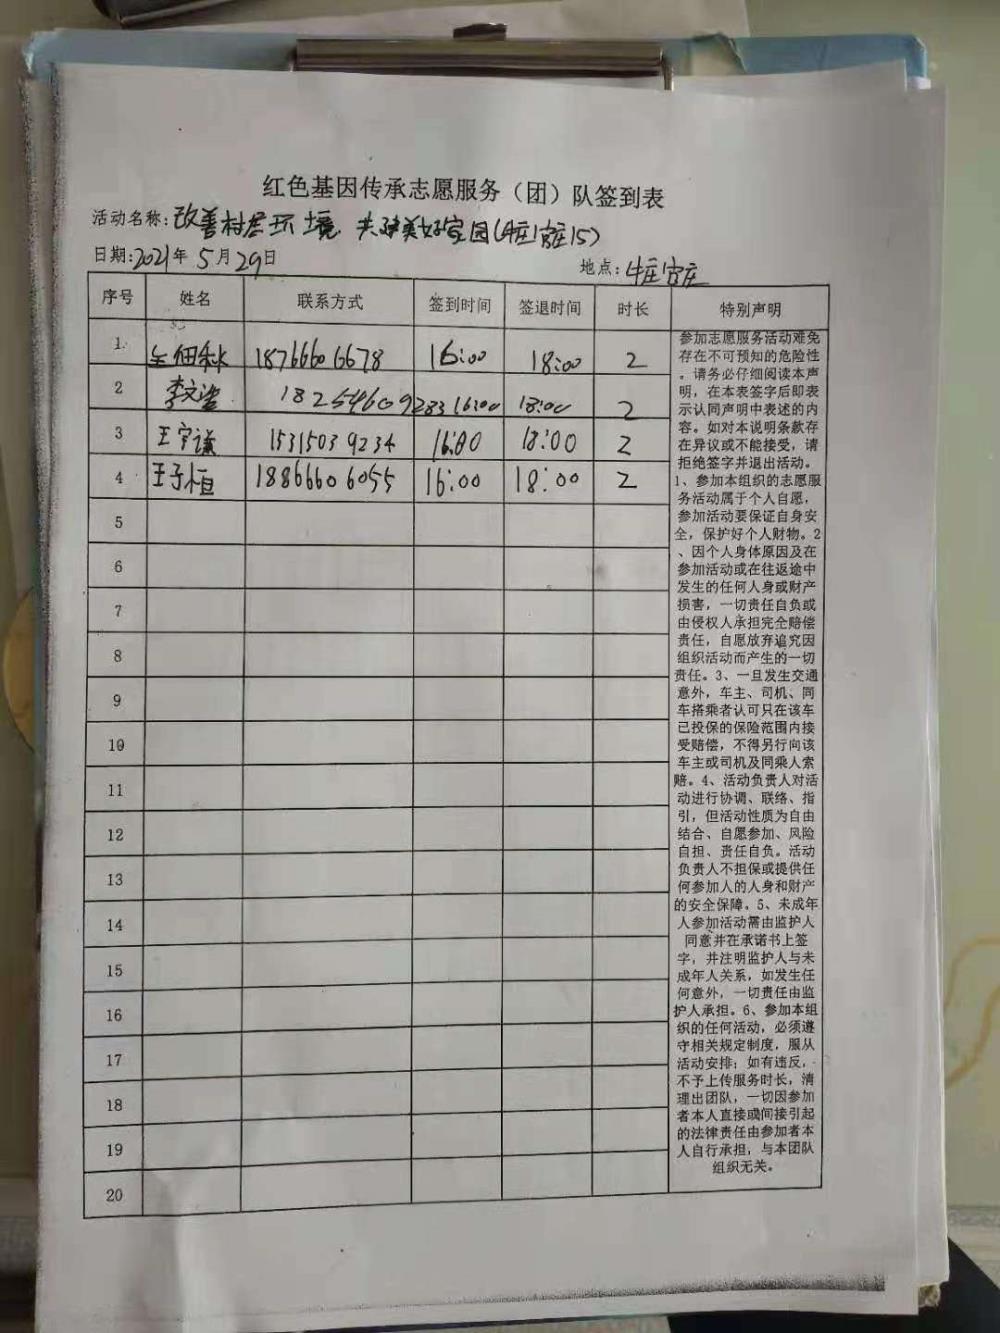 红色基因传承志愿服务（团）队签到表
活动名称：改善村居环境 共建美好家园(牛庄官庄15)
日期：2021年5月29日
地点：牛庄官庄
序号 姓名 联系方式 签到时间 签退时间 时长 特别声明
1. 18766606678 16:00 18:00 2
2 李文 18254609283 16:00 18:00 2
3 王宇谦 15315039234 16:00 18:00 2
4 王子桓 18866606055 16:00 18:00 2
5
6
7
8
9
10
11
12
13
14
15
16
17
18
19
20
参加志愿服务活动难免
存在不可预知的危险性
。请务必仔细阅读本声
明，在本表签字后即表
示认同声明中表述的内
容。如对本说明条款存
在异议或不能接受，请
拒绝签字并退出活动。
1、参加本组织的志愿服
务活动属于个人自愿，
参加活动要保证自身安
全，保护好个人财物。2
、因个人身体原因及在
参加活动或在往返途中
发生的任何人身或财产
损害，一切责任自负或
由侵权人承担完全赔偿
责任，自愿放弃追究因
组织活动而产生的一切
责任。3、一旦发生交通
意外，车主、司机、同
车搭乘者认可只在该车
已投保的保险范围内接
受赔偿，不得另行向该
车主或司机及同乘人索
赔。4、活动负责人对活
动进行协调、联络、指
引，但活动性质为自由
结合、自愿参加、风险
自担、责任自负。活动
负责人不担保或提供任
何参加人的人身和财产
的安全保障。5、未成年
人参加活动需由监护人
同意并在承诺书上签
字，并注明监护人与未
成年人关系，如发生任
何意外，一切责任由监
护人承担。6、参加本组
织的任何活动，必须遵
守相关规定制度，服从
活动安排；如有违反，
不予上传服务时长，清
理出团队，一切因参加
者本人直接或间接引起
的法律责任由参加者本
人自行承担，与本团队
组织无关。